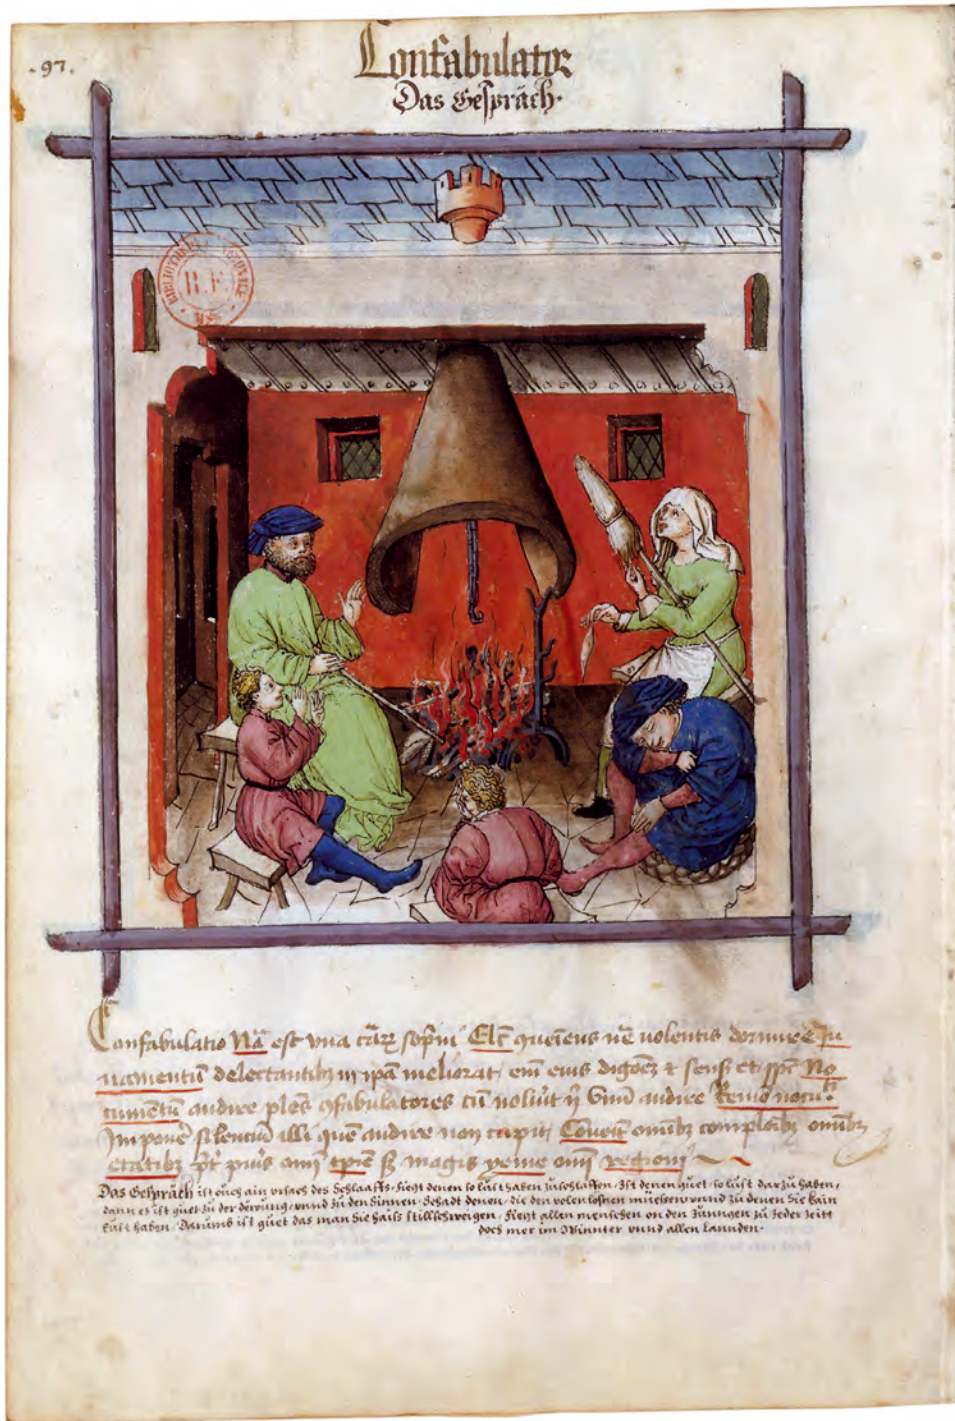 .97.
Confabulator
Das Gespräch.
BIBLIOTHEQUE NATIONALE
R.F.
Confabulatio Na est una caɼ sopni Elc̄ qveiens nē uolentis dormire Ju
uamentū delectantibꝫ meliorat, em eius digōeꝫ & sensꝫ No
cumentū audire ples 9fabulatores cū audire Remo nocuti
Imponē silenciū illi quē audire non cupit, Coueīt omībꝫ omībꝫ
etatibꝫ magis yeme omī regioni
Das Gespräch ist ouch ain vrsach des Schlaaffs, fiegt denen so lust haben zuschlaffen, Ist denen guet, so lust darzu haben,
dann es ist guet zu der deewung, vnnd zu den Sinnen, Schadt denen, die den volen losnen muessen, vnnd zu denen Sie kain
lust haben, Darumb ist guet das man Sie hails stillschweigen, fiegt allen menschen on den Jungen zu Jeder Zeitt
doch mer im Winnter vnnd allen Lannden.